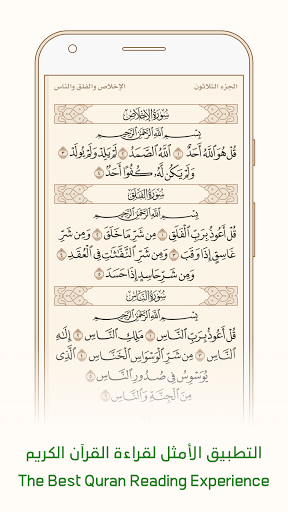 الجزء الثلاثون
الإخلاص والفلق والناس
سُورَةُ الإِخْلَاصِ
بِسْمِ ٱللَّهِ ٱلرَّحْمَٰنِ ٱلرَّحِيمِ
قُلْ هُوَ ٱللَّهُ أَحَدٌ ١ ٱللَّهُ ٱلصَّمَدُ ٢ لَمْ يَلِدْ وَلَمْ يُولَدْ ٣
وَلَمْ يَكُن لَّهُۥ كُفُوًا أَحَدٌ ٤
سُورَةُ الفَلَقِ
بِسْمِ ٱللَّهِ ٱلرَّحْمَٰنِ ٱلرَّحِيمِ
قُلْ أَعُوذُ بِرَبِّ ٱلْفَلَقِ ١ مِن شَرِّ مَا خَلَقَ ٢ وَمِن شَرِّ
غَاسِقٍ إِذَا وَقَبَ ٣ وَمِن شَرِّ ٱلنَّفَّٰثَٰتِ فِى ٱلْعُقَدِ ٤
وَمِن شَرِّ حَاسِدٍ إِذَا حَسَدَ ٥
سُورَةُ النَّاسِ
بِسْمِ ٱللَّهِ ٱلرَّحْمَٰنِ ٱلرَّحِيمِ
قُلْ أَعُوذُ بِرَبِّ ٱلنَّاسِ ١ مَلِكِ ٱلنَّاسِ ٢ إِلَٰهِ
ٱلنَّاسِ ٣ مِن شَرِّ ٱلْوَسْوَاسِ ٱلْخَنَّاسِ ٤ ٱلَّذِى
يُوَسْوِسُ فِى صُدُورِ ٱلنَّاسِ ٥
مِنَ ٱلْجِنَّةِ وَٱلنَّاسِ ٦
التطبيق الأمثل لقراءة القرآن الكريم
The Best Quran Reading Experience